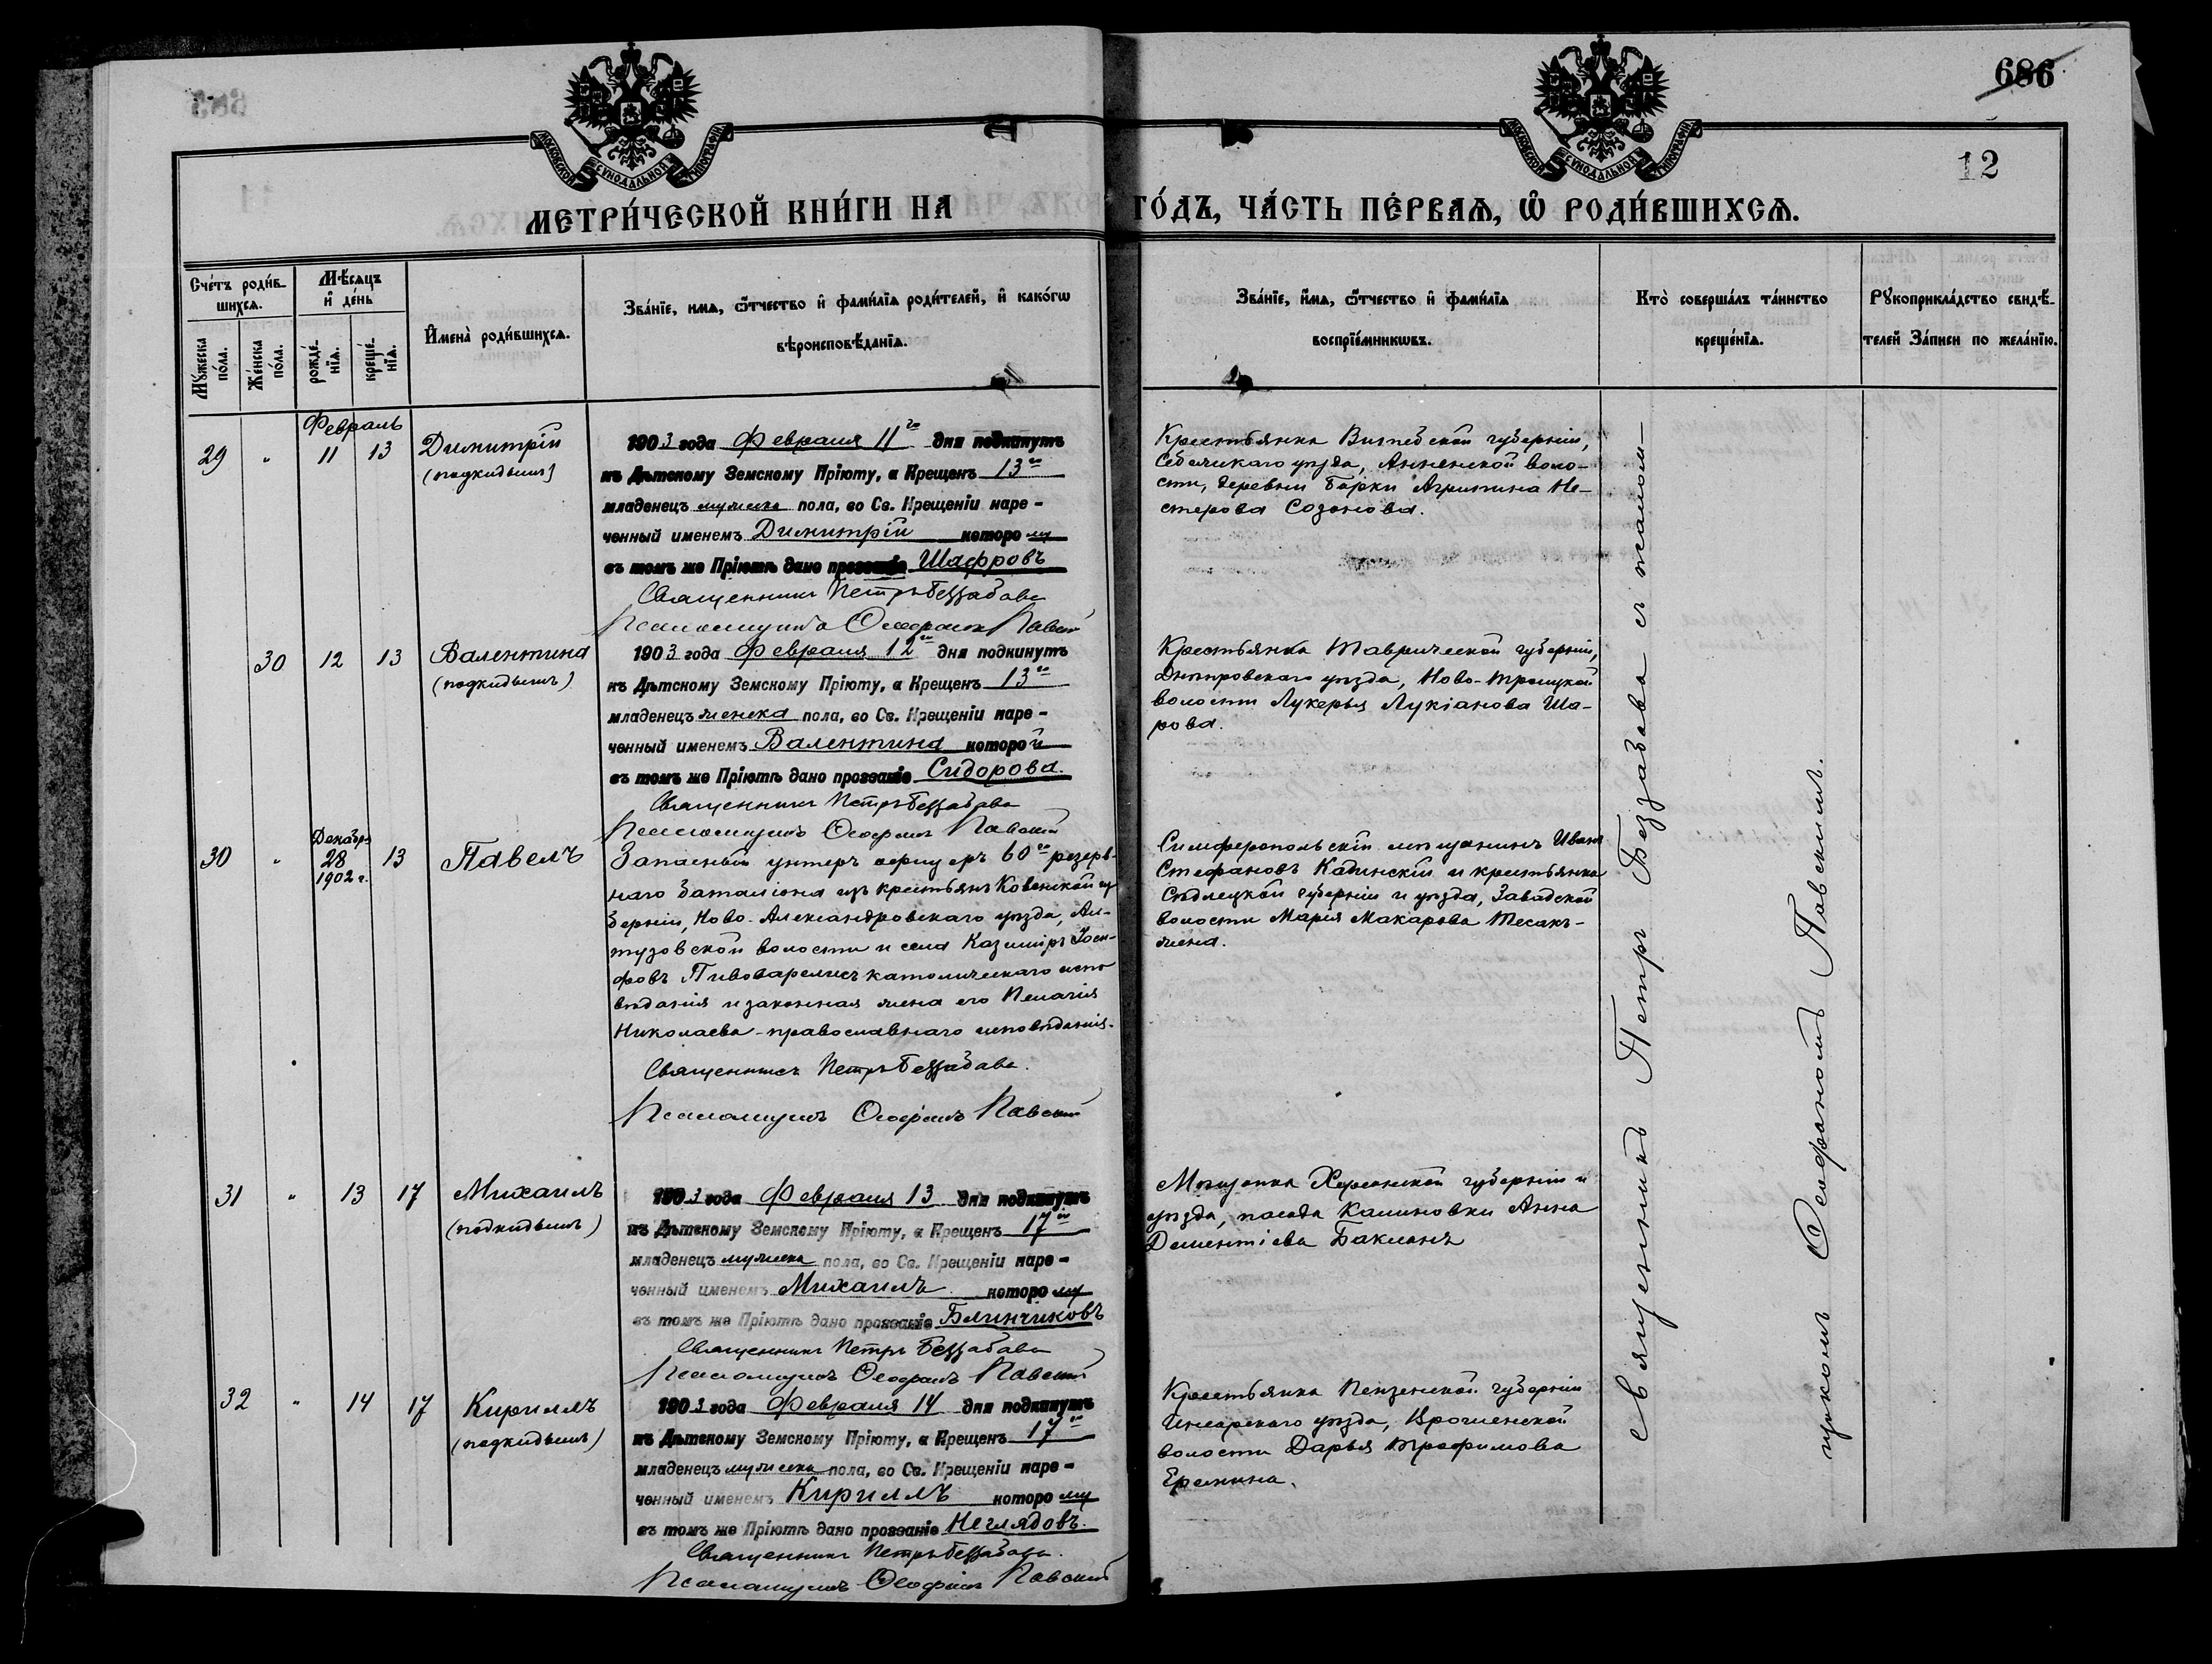 686
12
МОСКОВСКОЙ СѴНОДАЛЬНОЙ ТИПОГРАФІИ
МОСКОВСКОЙ СѴНОДАЛЬНОЙ ТИПОГРАФІИ
МЕТРИ́ЧЕСКОЙ КНИ́ГИ НА ГО́ДЪ, ЧА́СТЬ ПЕ́РВАѦ, Ѡ҆ РОДИ́ВШИХСѦ.
Сче́тъ роди́в-
шихсѧ.
Мꙋ́жеска по́ла.
Же́нска по́ла.
Мѣ́сѧцъ
и҆ де́нь
рожде́-
нїѧ.
креще́-
нїѧ.
И҆мена̀ роди́вшихсѧ.
Зва́нїе, имѧ, ѻ҆́тчество и҆ фами́лїѧ роди́телей, и҆ како́гѡ
вѣроисповѣ́данїѧ.
Зва́нїе, и҆́мѧ, ѻ҆́тчество и҆ фами́лїѧ
воспрїе́мникѡвъ.
Кто̀ соверша́лъ та́инство
креще́нїѧ.
Рꙋкоприкла́дство свидѣ́-
телей За́писи по жела́нїю.
Февраль
29 " 11 13 Димитрій
(подкидышъ)
1903 года Февраля 11го дня подкинутъ
къ Дѣтскому Земскому Пріюту, а Крещенъ 13го
младенецъ мужеска пола, во Св. Крещеніи наре-
ченный именемъ Димитрій которому
въ томъ же Пріютѣ дано прозваніе Шафровъ
Священникъ Петръ Беззабава
Псаломщикъ Ѳеофанъ Павскій
Крестьянка Витебской губерніи,
Себежскаго уѣзда, Анненской воло-
сти, деревни Борки Агрипина Не-
стерова Созонова.
30 12 13 Валентина
(подкидышъ)
1903 года Февраля 12го дня подкинутъ
къ Дѣтскому Земскому Пріюту, а Крещенъ 13го
младенецъ женска пола, во Св. Крещеніи наре-
ченный именемъ Валентина которой
въ томъ же Пріютѣ дано прозваніе Сидорова.
Священникъ Петръ Беззабава
Псаломщикъ Ѳеофанъ Павскій
Крестьянка Таврической губерніи,
Днѣпровскаго уѣзда, Ново-Троицкой
волости Лукерья Лукіанова Ша-
рова.
30 " Декабрь
28
1902 г. 13 Павелъ
Запасный унтеръ офицеръ 60го резерв-
наго баталіона изъ крестьянъ Ковенской гу-
берніи, Ново-Александровскаго уѣзда, Ан-
тузовской волости и села Казиміръ Іоси-
фовъ Пивоварелисъ католическаго испо
вѣданія и законная жена его Пелагія
Николаева - православнаго исповѣданія.
Священникъ Петръ Беззабава.
Псаломщикъ Ѳеофанъ Павскій
Симферопольскій мѣщанинъ Иванъ
Стефановъ Кадинскій и крестьянка
Сѣдлецкой губерніи и уѣзда, Завадской
волости Марія Макарова Тесакъ-
жена.
31 " 13 17 Михаилъ
(подкидышъ)
1903 года Февраля 13 дня подкинутъ
къ Дѣтскому Земскому Пріюту, а Крещенъ 17го
младенецъ мужеска пола, во Св. Крещеніи наре-
ченный именемъ Михаилъ которому
въ томъ же Пріютѣ дано прозваніе Блинчиковъ
Священникъ Петръ Беззабава
Псаломщикъ Ѳеофанъ Павскій
Мѣщанка Херсонской губерніи и
уѣзда, посада Калиновки Анна
Дементіева Бакланъ
32 " 14 17 Кириллъ
(подкидышъ)
1903 года Февраля 14 дня подкинутъ
къ Дѣтскому Земскому Пріюту, а Крещенъ 17го
младенецъ мужеска пола, во Св. Крещеніи наре-
ченный именемъ Кириллъ которому
въ томъ же Пріютѣ дано прозваніе Неглядовъ.
Священникъ Петръ Беззабава.
Псаломщикъ Ѳеофанъ Павскій
Крестьянка Пензенской губерніи
Инсарскаго уѣзда, волости Дарья Трофимова
Еремина.
Священникъ Петръ Беззабава съ псалом-
щикомъ Ѳеофаномъ Павскимъ.